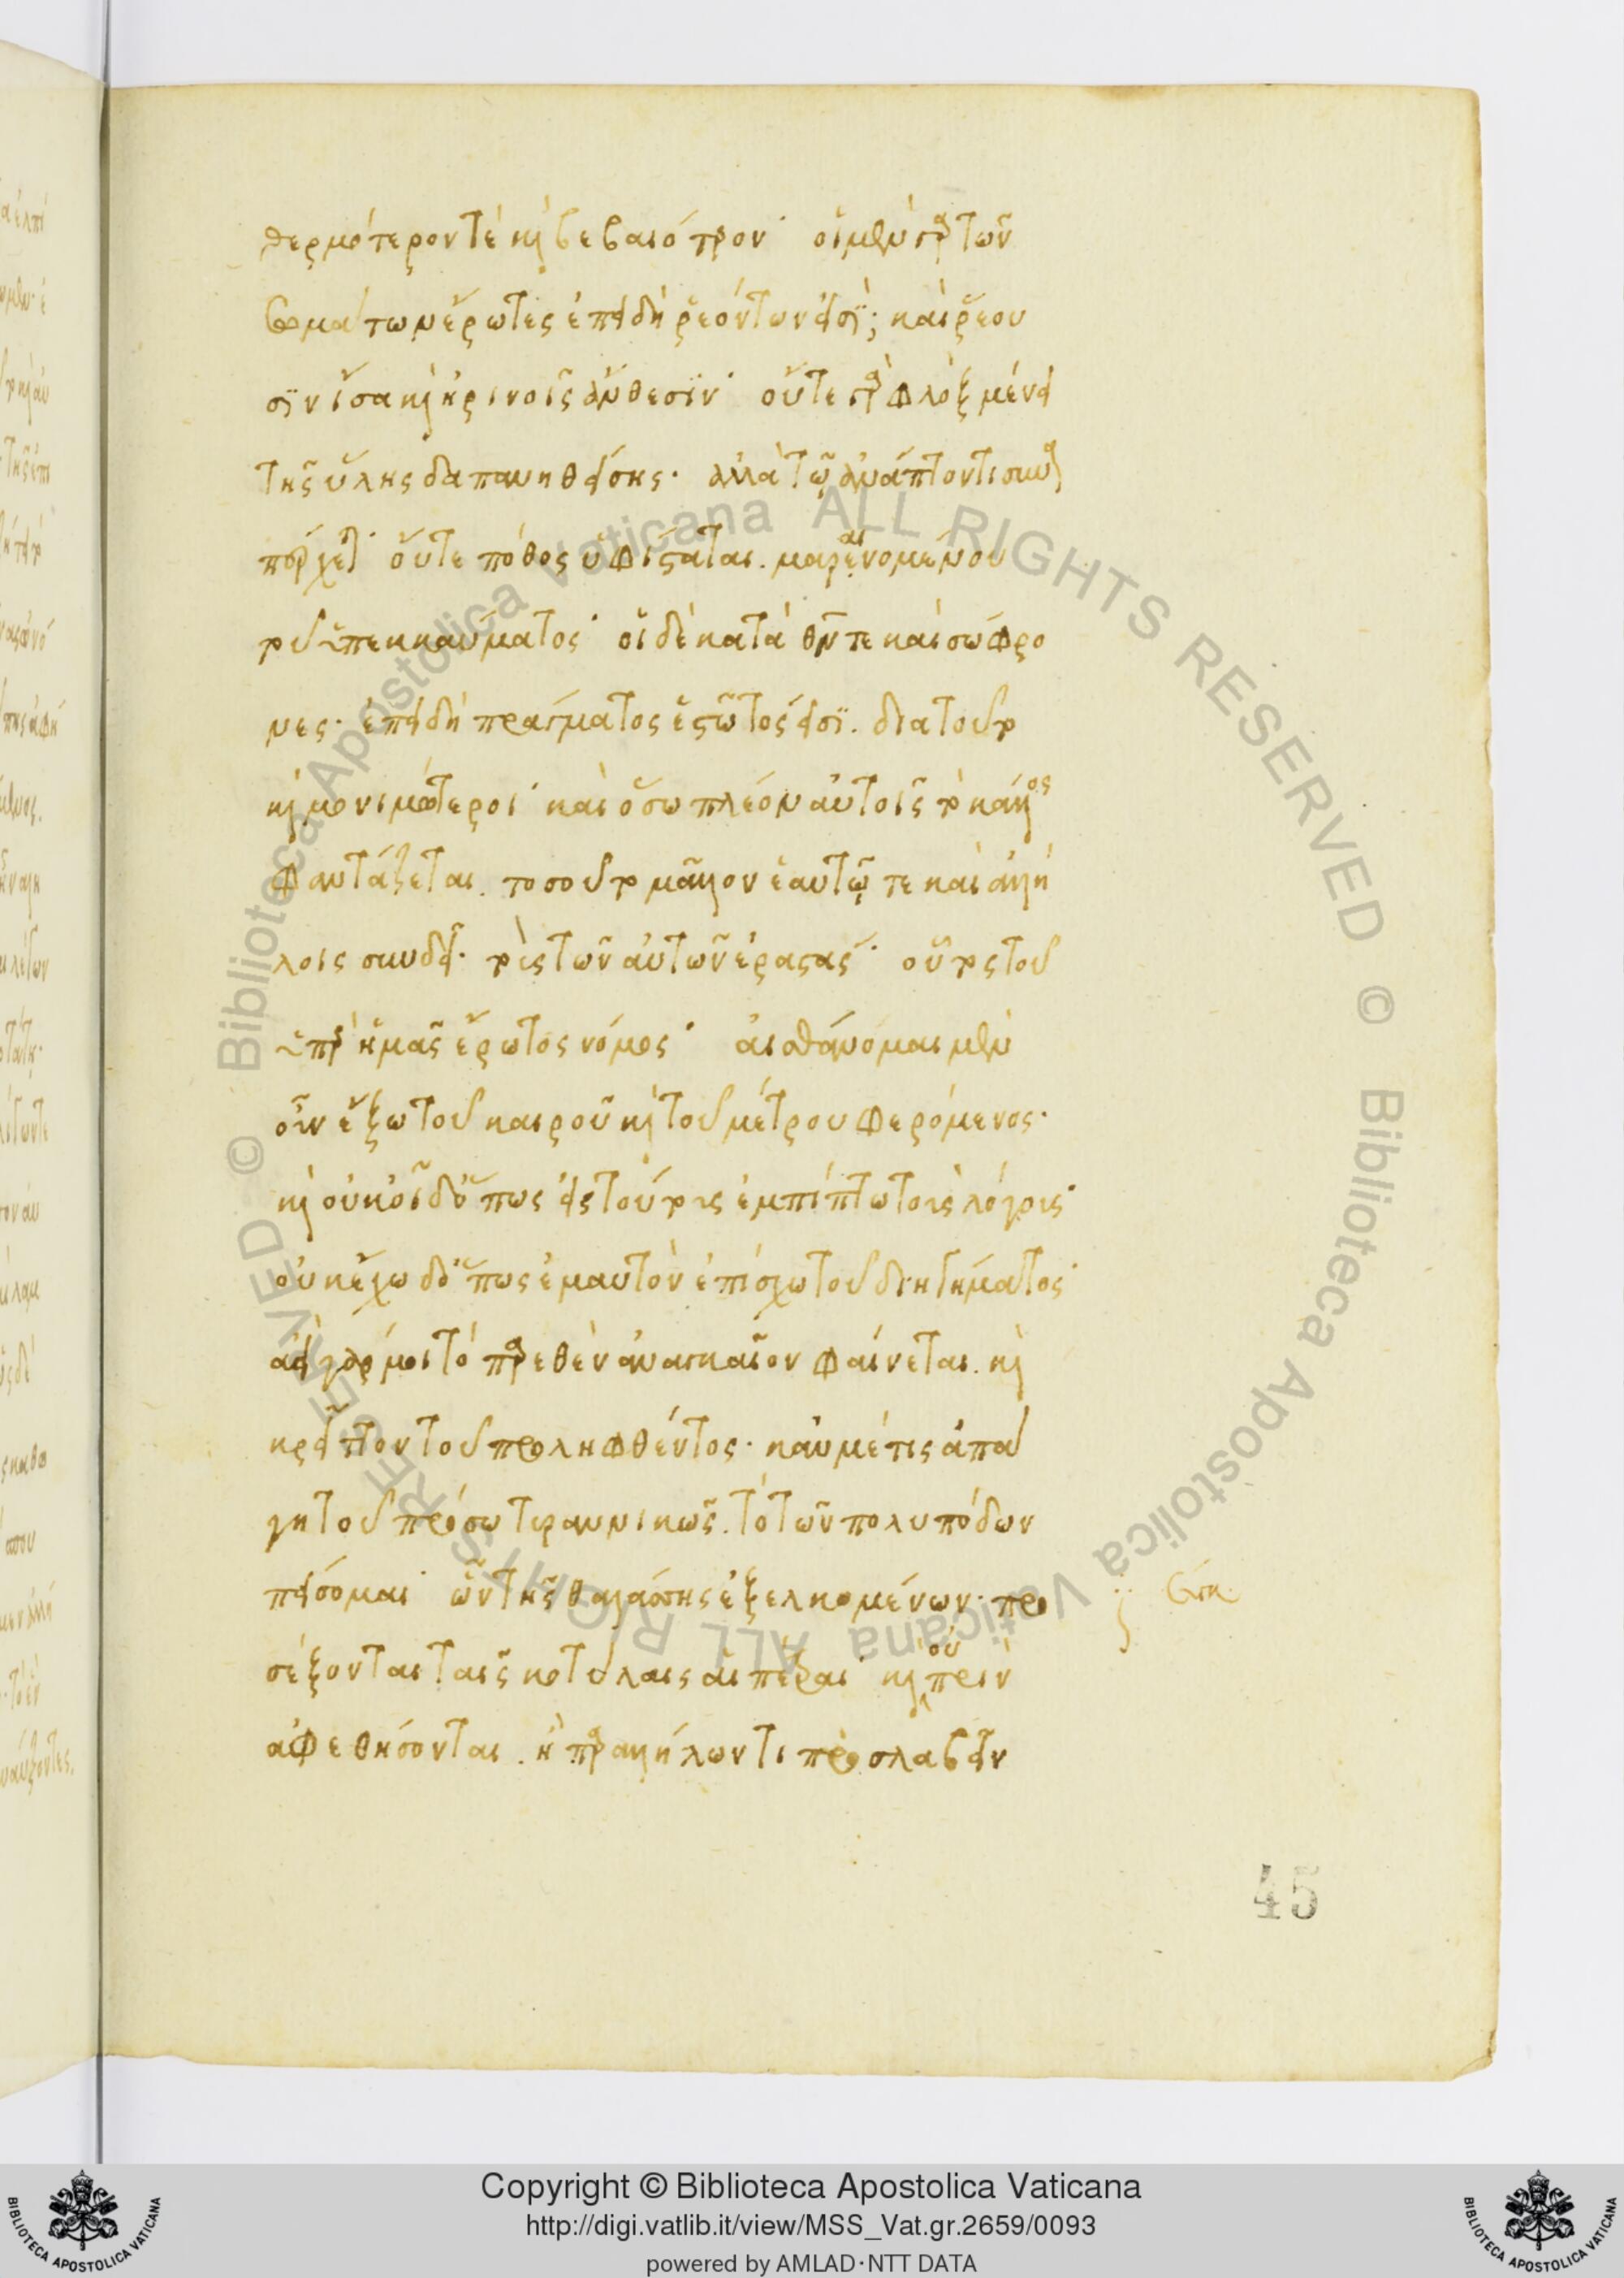 θερμότερον τὲ καὶ βεβαιότερον· οἱ μὲν γὰρ τῶν
σωμάτων ἔρωτες ἐπειδὴ ῥεόντων εἰσί; καὶ ῥέου
σιν ἴσα καὶ ἠρινοῖς ἄνθεσιν· οὔτε γὰρ φλὸξ μένει
τῆς ὕλης δαπανηθείσης· ἀλλὰ τῷ ἀνάπτοντι συν
απέρχεται· οὔτε πόθος ὑφίσταται. μαραινομένου
τοῦ ὑπεκκαύματος· οἱ δὲ κατὰ θεόν τε καὶ σώφρο
νες· ἐπειδὴ πράγματος ἑστῶτός εἰσι. διατοῦτο
καὶ μονιμώτεροι· καὶ ὅσω πλέον αὐτοῖς τὸ κάλλος
φαντάζεται. τοσοῦτο μᾶλλον ἑαυτῷ τε καὶ ἀλλή
λοις συνδεῖ· τοὺς τῶν αὐτῶν ἐραστάς· οὗτος τοῦ
ὑπὲρ ἡμᾶς ἔρωτος νόμος· αἰσθάνομαι μὲν
οὖν ἔξω τοῦ καιροῦ καὶ τοῦ μέτρου φερόμενος·
καὶ οὐκ οἶδ' ὅπως εἰς τούτους ἐμπίπτω τοὺς λόγους·
οὐκ ἔχω δ' ὅπως ἐμαυτὸν ἐπίσχω τοῦ διηγήματος·
ἀεὶ γάρ μοι τὸ παρεθὲν ἀναγκαῖον φαίνεται. καὶ
κρεῖττον τοῦ προληφθέντος· κἄν μέ τις ἀπά
γῃ τοῦ πρόσω τυραννικῶς. τὸ τῶν πολυπόδων
πείσομαι· ὧν τῆς θαλάσσης ἐξελκομένων· προ
σέξονται ταῖς κοτύλαις αἱ πέτραι· καὶ οὐ πρὶν
ἀφεθήσονται. ἢ παρ' ἀλλήλων τι προσλαβεῖν
45
Copyright © Biblioteca Apostolica Vaticana
http://digi.vatlib.it/view/MSS_Vat.gr.2659/0093
powered by AMLAD·NTT DATA
BIBLIOTECA APOSTOLICA VATICANA
BIBLIOTECA APOSTOLICA VATICANA
© Biblioteca Apostolica Vaticana ALL RIGHTS RESERVED © Biblioteca Apostolica Vaticana ALL RIGHTS RESERVED